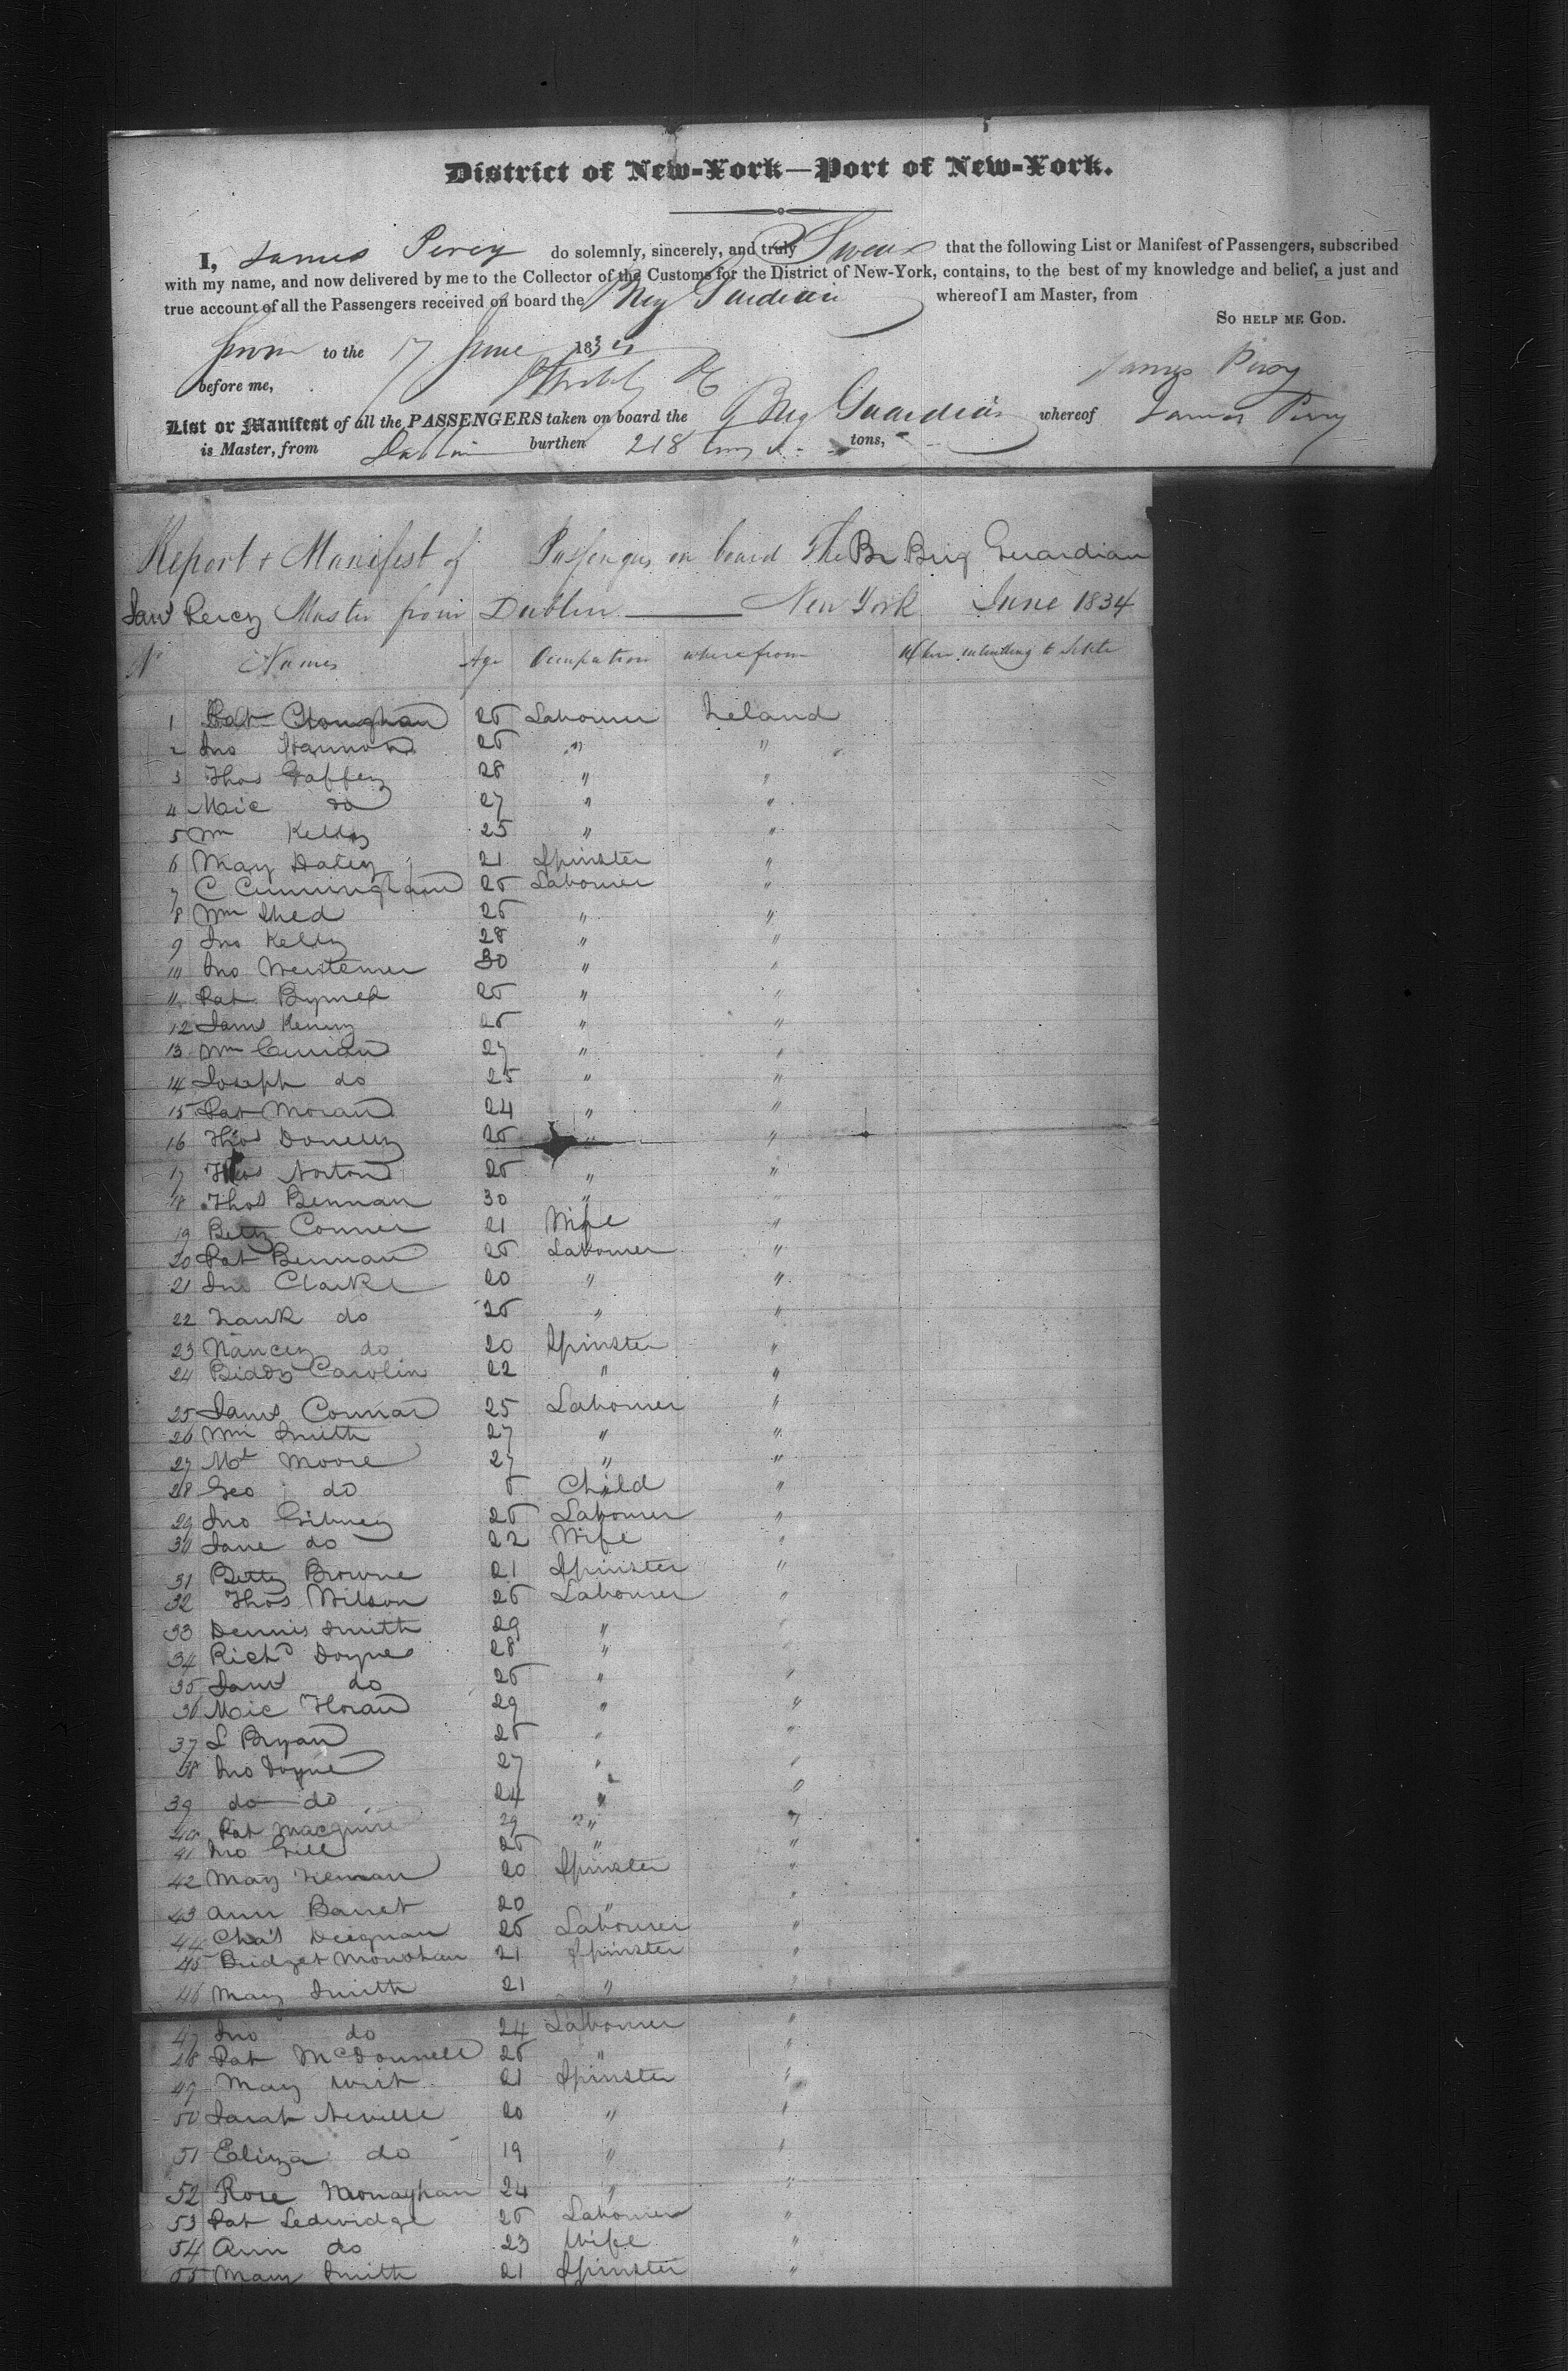 District of New-York—Port of New-York.
I, James Percy do solemnly, sincerely, and truly Swear that the following List or Manifest of Passengers, subscribed
with my name, and now delivered by me to the Collector of the Customs for the District of New-York, contains, to the best of my knowledge and belief, a just and
true account of all the Passengers received on board the Brig Guardian whereof I am Master, from
So help me God.
Sworn to the 17 June 183
before me,
James Percy
List or Manifest of all the PASSENGERS taken on board the Brig Guardian whereof James Percy
is Master, from Dublin burthen 218 tons,
Report & Manifest of Passengers on board The Br Brig Guardian
Jams Percy Master from Dublin — New York June 1834
No Names Age Occupation where from Where intending to settle
1 Pat Cloughan 25 Labourer Ireland
2 Jno Hannon 25 " "
3 Thos Gaffey 28 " "
4 Mic do 27 " "
5 Wm Kelly 25 " "
6 Mary Daley 21 Spinster "
7 C Cunningham 25 Labourer "
8 Wm Shed 25 " "
9 Jno Kelly 28 " "
10 Jno 30 " "
11 Pat Byrnes 25 " "
12 Jams Kenny 25 " "
13 Wm Curran 27 " "
14 Joseph do 25 " "
15 Pat Moran 24 " "
16 Thos Donelly 25 " "
17 Thos Norton 25 " "
18 Thos Bennan 30 " "
19 Betty Conner 21 Wife "
20 Pat Bennan 25 Labourer "
21 Jno Clarke 20 " "
22 do 25 " "
23 Nancy do 20 Spinster "
24 Biddy Carolin 22 " "
25 Jams Connor 25 Labourer "
26 Wm Smith 27 " "
27 Mt Moore 27 " "
28 Geo do 5 Child "
29 Jno Gibney 25 Labourer "
30 Jane do 22 Wife "
31 Betty Browne 21 Spinster "
32 Thos Wilson 25 Labourer "
33 Dennis Smith 29 " "
34 Richd Doyne 28 " "
35 Jams do 25 " "
36 Mic Horan 29 " "
37 L Bryan 25 " "
38 Jno Doyne 27 " "
39 do do 24 " "
40 Pat Macguire 29 " "
41 Jno Gill 25 " "
42 Mary 20 Spinster "
43 Ann Barret 20 " "
44 Chas Deignan 25 Labourer "
45 Bridget Monohan 21 Spinster "
46 Mary Smith 21 " "
47 Jno do 24 Labourer "
48 Pat McDonnell 25 " "
49 Mary 21 Spinster "
50 Sarah Neville 20 " "
51 Eliza do 19 " "
52 Rose Monaghan 24 " "
53 Pat Ledwidge 25 Labourer "
54 Ann do 23 Wife "
55 Mary Smith 21 Spinster "